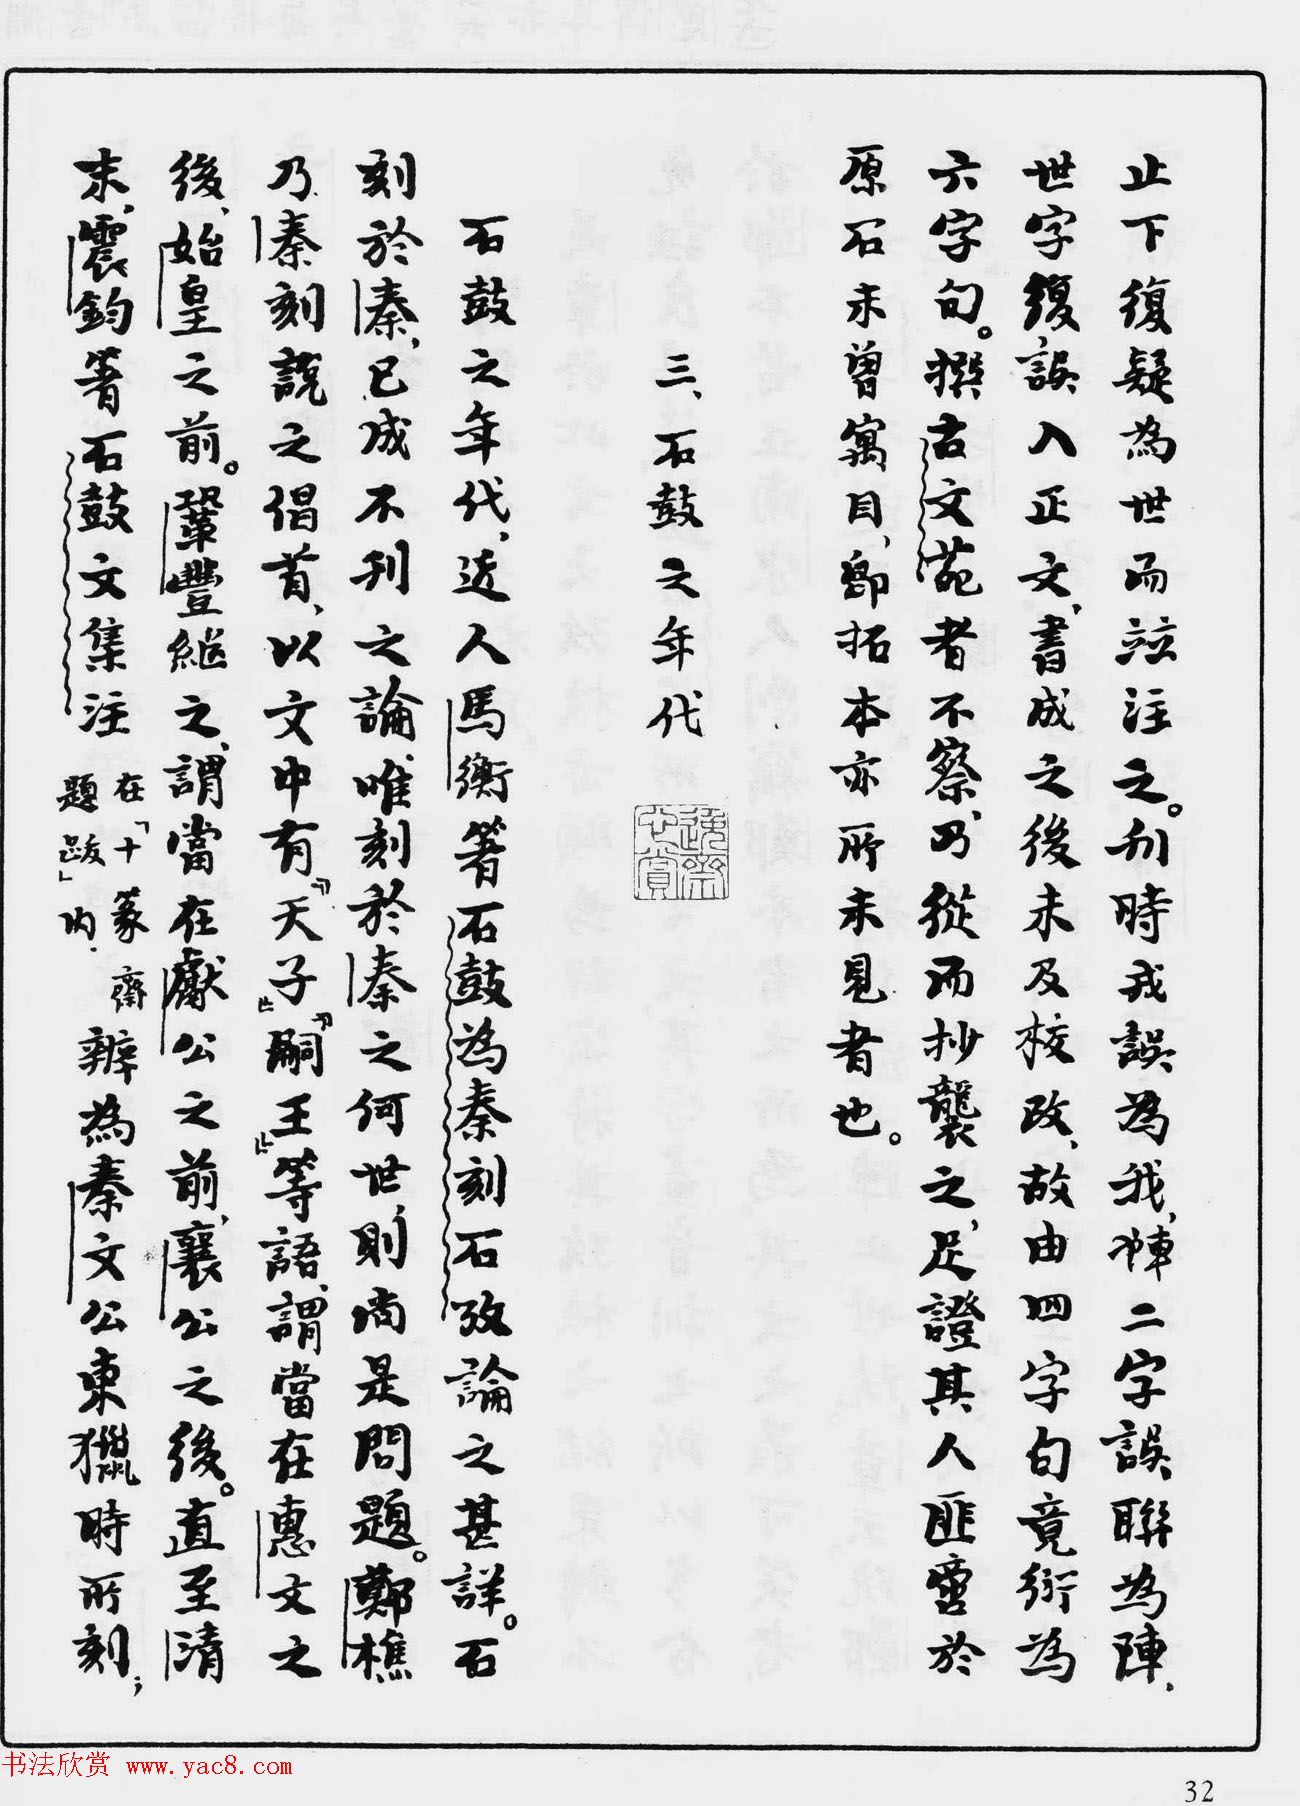 止下復疑為世而泣注之。刋時戎誤為我，㥄二字誤聯為陣、
世字復誤入正文，書成之後未及校改，故由四字句竟衍為
六字句。撰古文苑者不察，乃從而抄襲之，足證其人匪啻於
原石未曾寓目，即拓本亦所未見者也。
三、石鼓之年代
石鼓之年代，近人馬衡著石鼓為秦刻石攷論之甚詳。石
刻於秦，已成不刊之論，唯刻於秦之何世，則尚是問題。鄭樵
乃秦刻說之倡首，以文中有「天子」「嗣王」等語，謂當在惠文之
後，始皇之前。鞏豐繼之，謂當在獻公之前，襄公之後。直至清
末，震鈞著石鼓文集注在「十篆齋題跋」内．辨為秦文公東獵時所刻；
書法欣賞 www.yac8.com
32